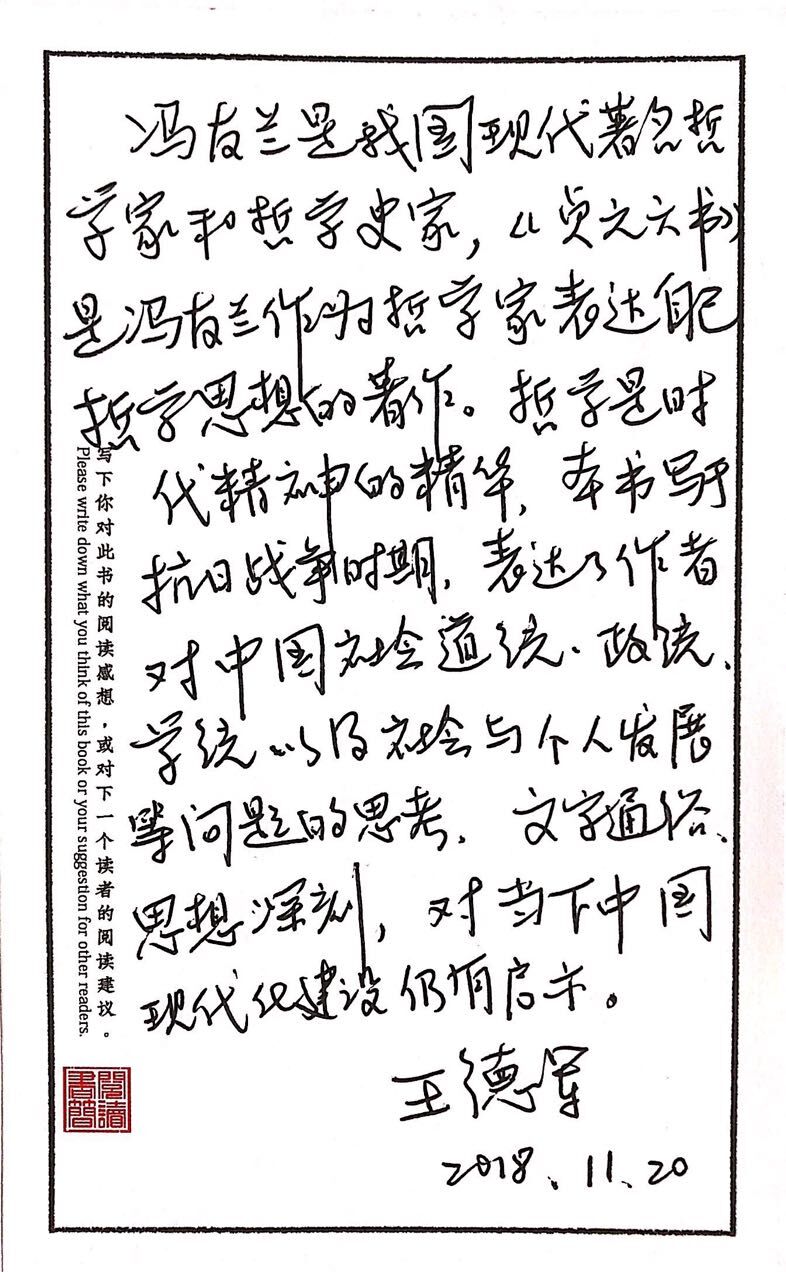 冯友兰是我国现代著名哲
学家和哲学史家，《贞元六书》
是冯友兰作为哲学家表达自己
哲学思想的著作。哲学是时
代精神的精华，本书写于
抗日战争时期，表达了作者
对中国社会道统、政统、
学统以及社会与个人发展
等问题的思考，文字通俗、
思想深刻，对当下中国
现代化建设仍有启示。
王德军
2018.11.20
写下你对此书的阅读感想，或对下一个读者的阅读建议。
Please write down what you think of this book or your suggestion for other readers.
閱讀書簡